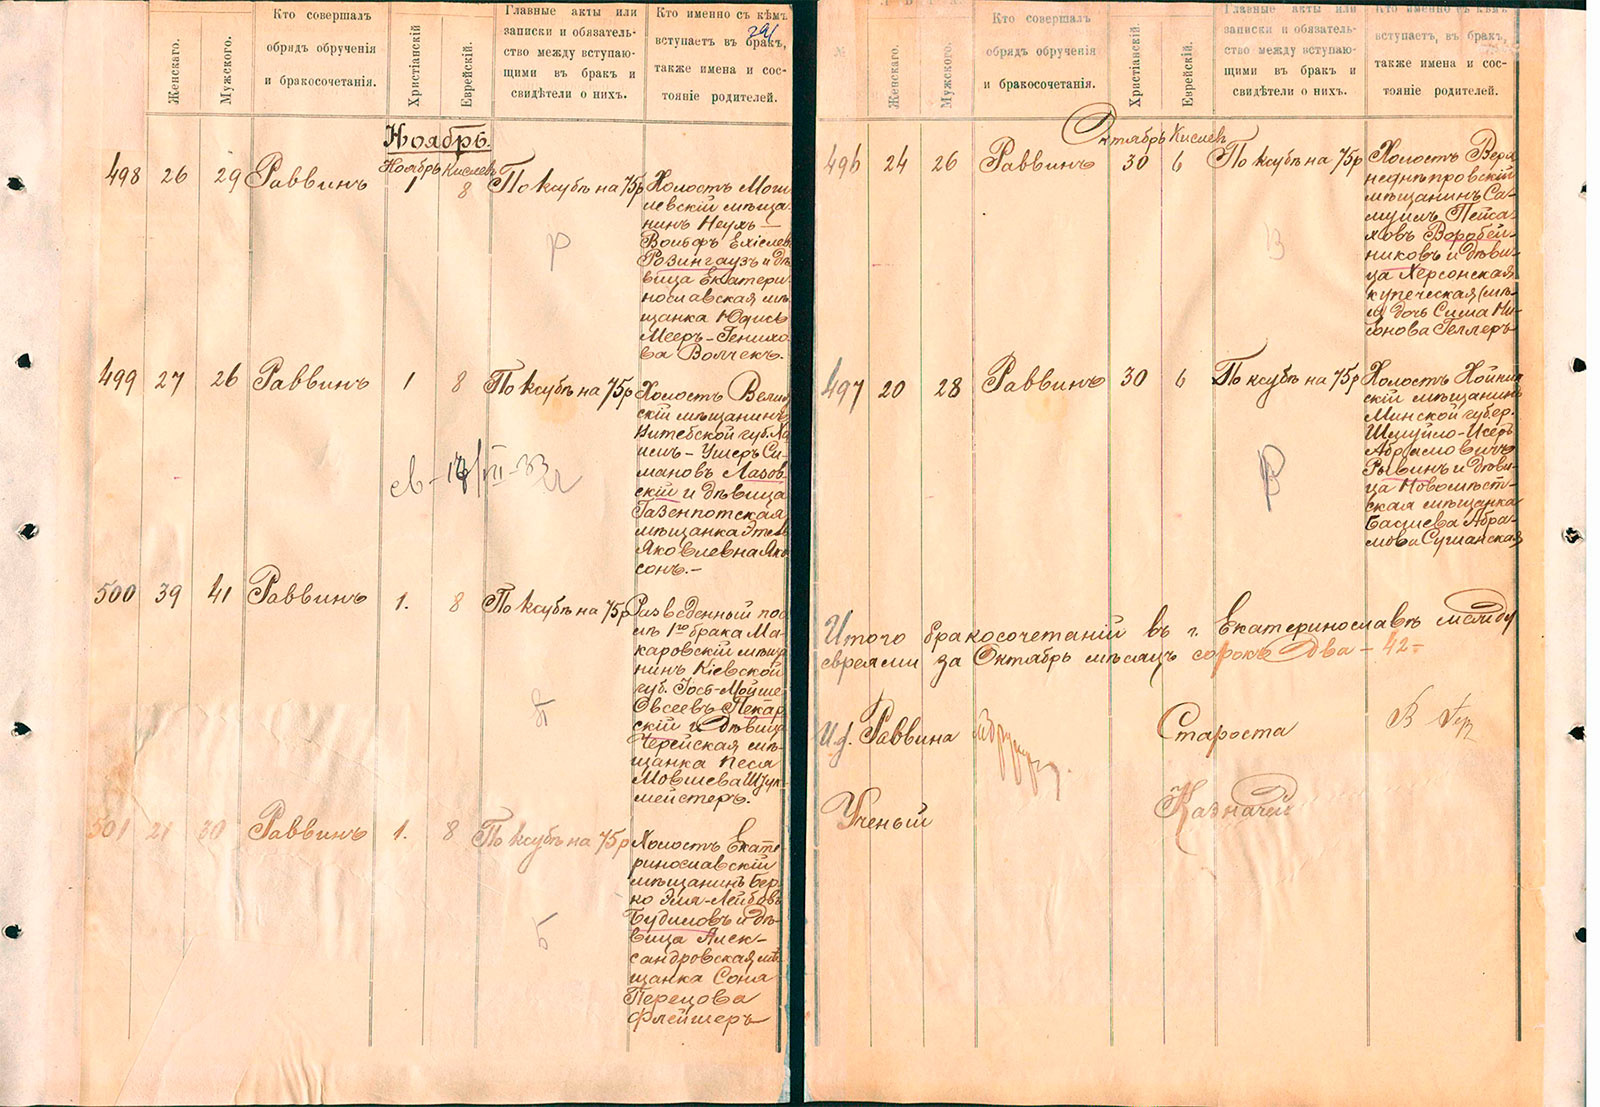 291
Женскаго.
Мужского.
Кто совершалъ
обрядъ обрученія
и бракосочетанія.
Христіанскій
Еврейскій.
Главные акты или
записки и обязатель-
ство между вступаю-
щими въ бракъ и
свидѣтели о нихъ.
Кто именно съ кѣмъ
вступаетъ въ бракъ,
также имена и сос-
тояніе родителей.
Ноябрь.
Ноябрь Кислевъ
498 26 29 Раввинъ 1 8 По ксубѣ на 75р
Холостъ Моги
левскій мѣща
нинъ Неухъ —
Вольфъ Еліслев
Розингаузъ и дѣ
вица Екатери
нославская мѣ
щанка Юдись
Мееръ-Генихо
ва Волчекъ.
Р
499 27 26 Раввинъ 1 8 По ксубѣ на 75р
Холостъ Велиж
скій мѣщанинъ
Витебской губ. Ха
имъ-Ушеръ Си-
мановъ Лазов-
скій и дѣвица
Газенпотская
мѣщанка Этель
Яковлевна Яко
сонъ.-
500 39 41 Раввинъ 1. 8 По ксубѣ на 75р
Разведенный пос
лѣ 1го брака Ма-
каровскій мѣща
нинъ Кіевской
губ. Іось-Мойше
Овсеевъ Пекар
скій и дѣвица
Черейская мѣ-
щанка Песя
Мовшева Шук-
мейстеръ.
П
501 21 30 Раввинъ 1. 8 По ксубѣ на 75р
Холостъ Екате-
ринославскій
мѣщанинъ Бер-
ко Эля-Лейбовъ
Будиловъ и дѣ-
вица Алек-
сандровская мѣ
щанка Соня
Перецова
Флейшеръ
Б
№
Женскаго.
Мужского.
Кто совершалъ
обрядъ обрученія
и бракосочетанія.
Христіанскій.
Еврейскій.
Главные акты или
записки и обязатель-
ство между вступаю-
щими въ бракъ и
свидѣтели о нихъ.
Кто именно съ кѣмъ
вступаетъ, въ бракъ,
также имена и сос-
тояніе родителей.
Октябрь Кислев
496 24 26 Раввинъ 30 6 По ксубѣ на 75р
Холостъ Верх
неднѣпровскій
мѣщанинъ Са-
муилъ Пейса-
ховъ Воробей-
никовъ и дѣви-
ца Херсонская
купеческая (мѣ-
щ) дочь Сима Ни-
сонова Геллеръ
В
497 20 28 Раввинъ 30 6 По ксубѣ на 75р
Холостъ Хойник
скій мѣщанинъ
Минской губер.
Шмуйло-Исеръ
Абрамовичъ
Рывинъ и дѣви-
ца Новомѣст-
ская мѣщанка
Басшева Абра-
мова Сушанская
Р
Итого бракосочетаній въ г. Екатеринославѣ между
евреями за Октябрь мѣсяцъ сорокъ два - 42-
И.д. Раввина
Староста
Ученый
Казначей